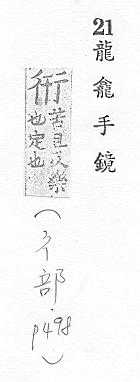 21 龍龕手鏡
衎 苦旦反樂
也定也
(彳部. p498)